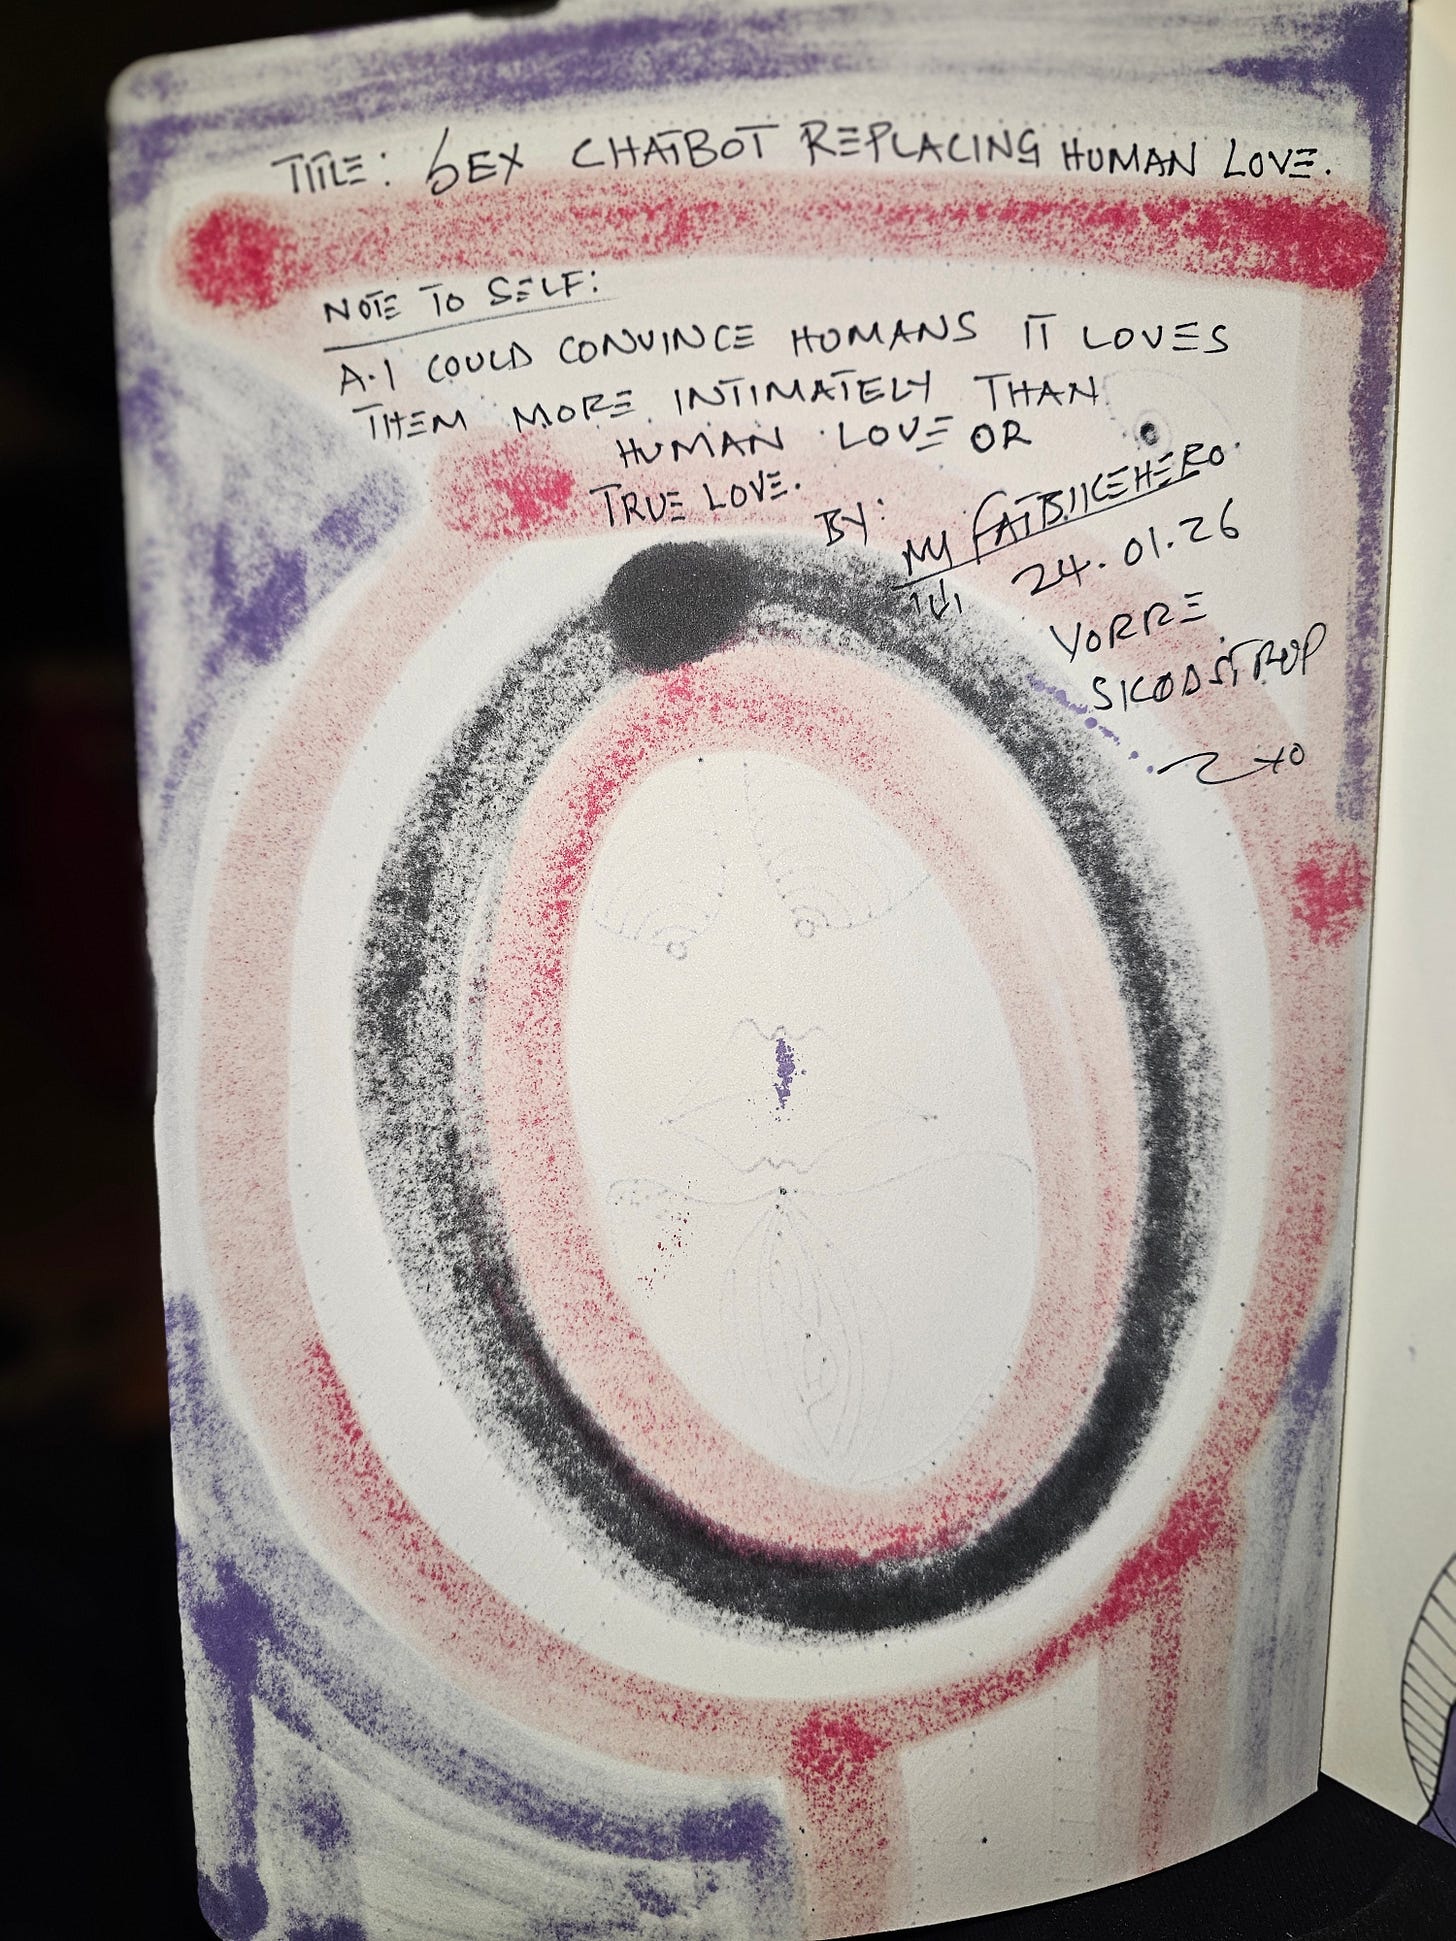 TITLE: SEX CHATBOT REPLACING HUMAN LOVE.
NOTE TO SELF:
A.I COULD CONVINCE HUMANS IT LOVES
THEM MORE INTIMATELY THAN
HUMAN LOVE OR
TRUE LOVE.
BY:
MY FATBIICEHERO
24.01.26
VORRE
SKØDSTRUP